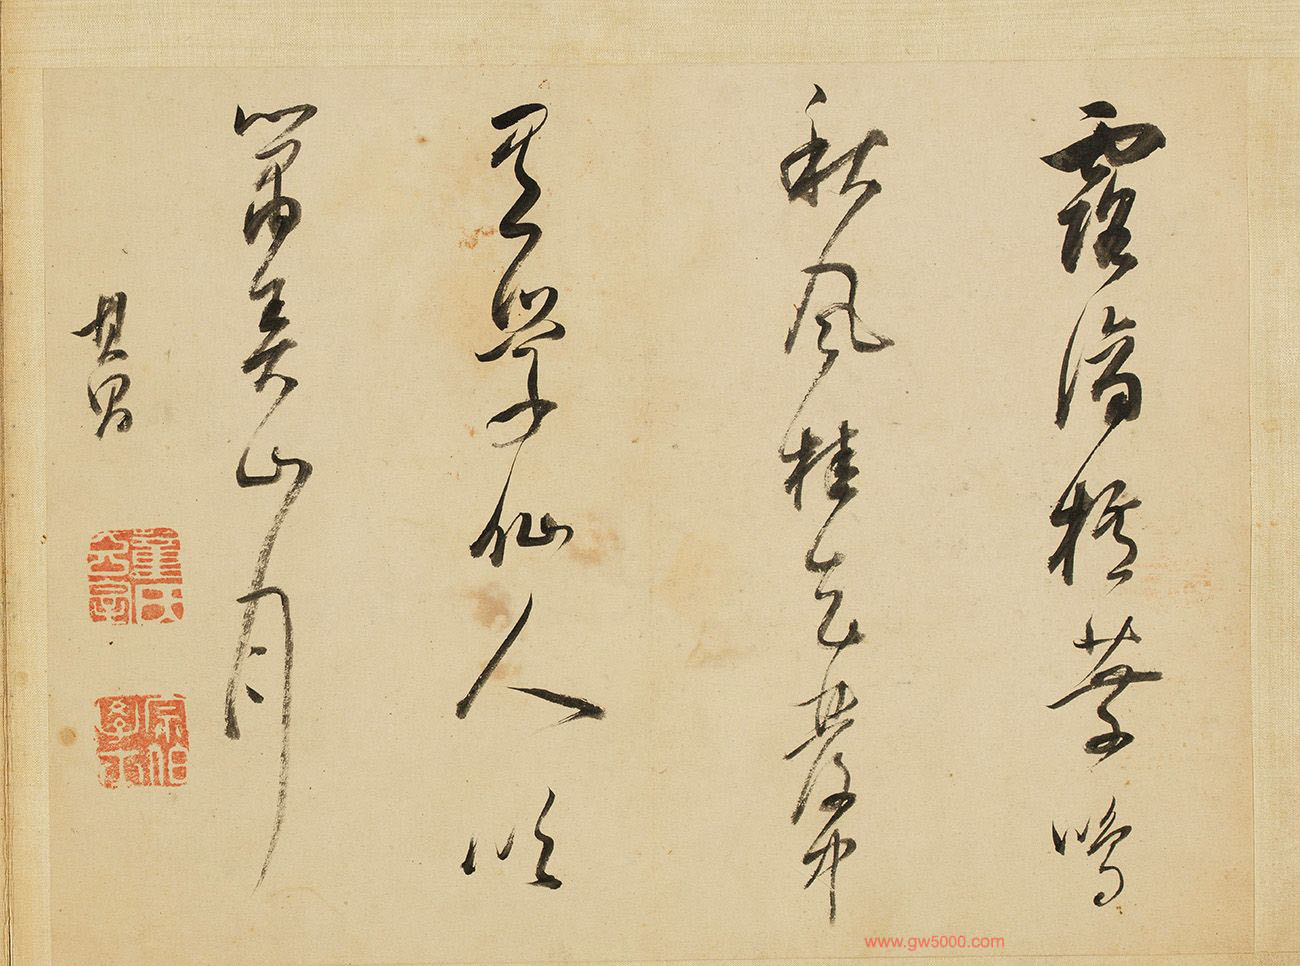 露滴梧葉鳴
秋風桂花發中
有學仙人吹
簫弄山月
其昌
董氏玄宰
宗伯學士
www.gw5000.com